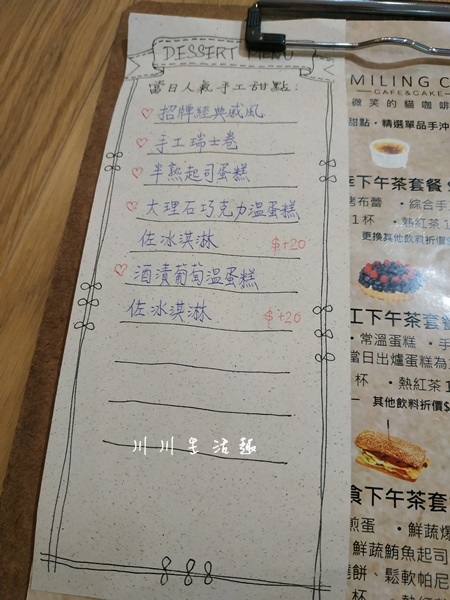 DESSERT MENU
當日人氣手工甜點:
♡ 招牌經典戚風
♡ 手工瑞士卷
♡ 半熟起司蛋糕
♡ 大理石巧克力溫蛋糕
佐冰淇淋 $+20
♡ 酒漬葡萄溫蛋糕
佐冰淇淋 $+20
川川生活趣
MILING C
CAFE&CAKE
微笑的貓咖啡
甜點・精選單品手沖
下午茶套餐
烤布蕾 ・綜合手
1杯 ・熱紅茶1
更換其他飲料折價
工下午茶套餐
・常溫蛋糕 ・手
當日出爐蛋糕為
杯 ・熱紅茶1
其他飲料折價$
食下午茶套
煎蛋 ・鮮蔬爆
鮮蔬鮪魚起司
燒餅、鬆軟帕尼
杯 ・熱紅